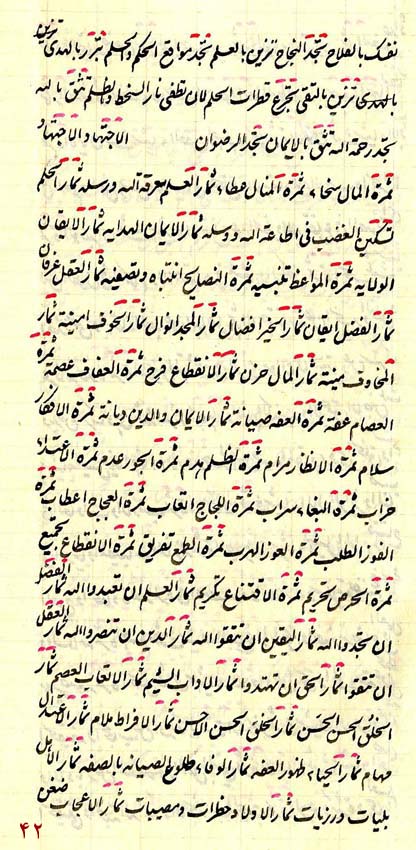 نفسک بالفلاح تتجد النجاح تزین بالعلم تتجد مواقع الحکم والحلم تبرر بالهدی
بالهدی تزین بالتقی تتجرع قطرات الحلم لان تطفی نار السخط والظلم تثق بالله
تتجد رحمة الله تثق بالایمان تتجد الرضوان الاجتهاد والاجتهاد
ثمرة المال سخاء ثمرة المنال عطاء ثمار العلم معرفة الله ورسله ثمار الحکم
تسکین الغضب فی اطاعة الله ورسله ثمار الایمان الهدایه ثمار الایقان
الولایه ثمرة المواعظ تنبیه ثمرة النصایح انتباه وتصفیه ثمار العقل عرفان
ثمار الفضل ایقان ثمار الخیر افضال ثمار المجد انوال ثمار الخوف امینة ثمار
المخاوف مینة ثمار المال حزن ثمار الانقطاع فرح ثمرة العفاف عصمة ثمرة
العصام عفة ثمرة العفه صیانة ثمار الایمان والدین دیانة ثمرة الافکار
سلام ثمرة الانظار مرام ثمرة الظلم هدم ثمرة الجور عدم ثمرة الاعتداء
خراب ثمرة البغاء سراب ثمرة اللجاج اتعاب ثمرة العجاج اعطاب ثمرة
الفوز الطلب ثمرة العوز الهرب ثمرة الطمع تفریق ثمرة الانقطاع تجمیع
ثمرة الحرص تحریم ثمرة الاقتناع تکریم ثمار العلم ان تعبدوا الله ثمار الفضل
ان تتجدوا الله ثمار الیقین ان تتقوا الله ثمار الدین ان تنصروا الله ثمار العقل
ان تتقوا ثمار الحق ان تهتدوا ثمار الاداب الشیم ثمار الاتعاب العصم ثمار
الخلق الحسن الحسن ثمار الخلق الحسن الاحسن ثمار الافراط ملام ثمار الاعتدال
مهام ثمار الحیاء ظهور العفه ثمار الوفاء طلوع الصیانه بالصفه ثمار الامل
بلیات ورزیات ثمار الاولاد خطرات ومصیبات ثمار الاعجاب ضغن
۴۲